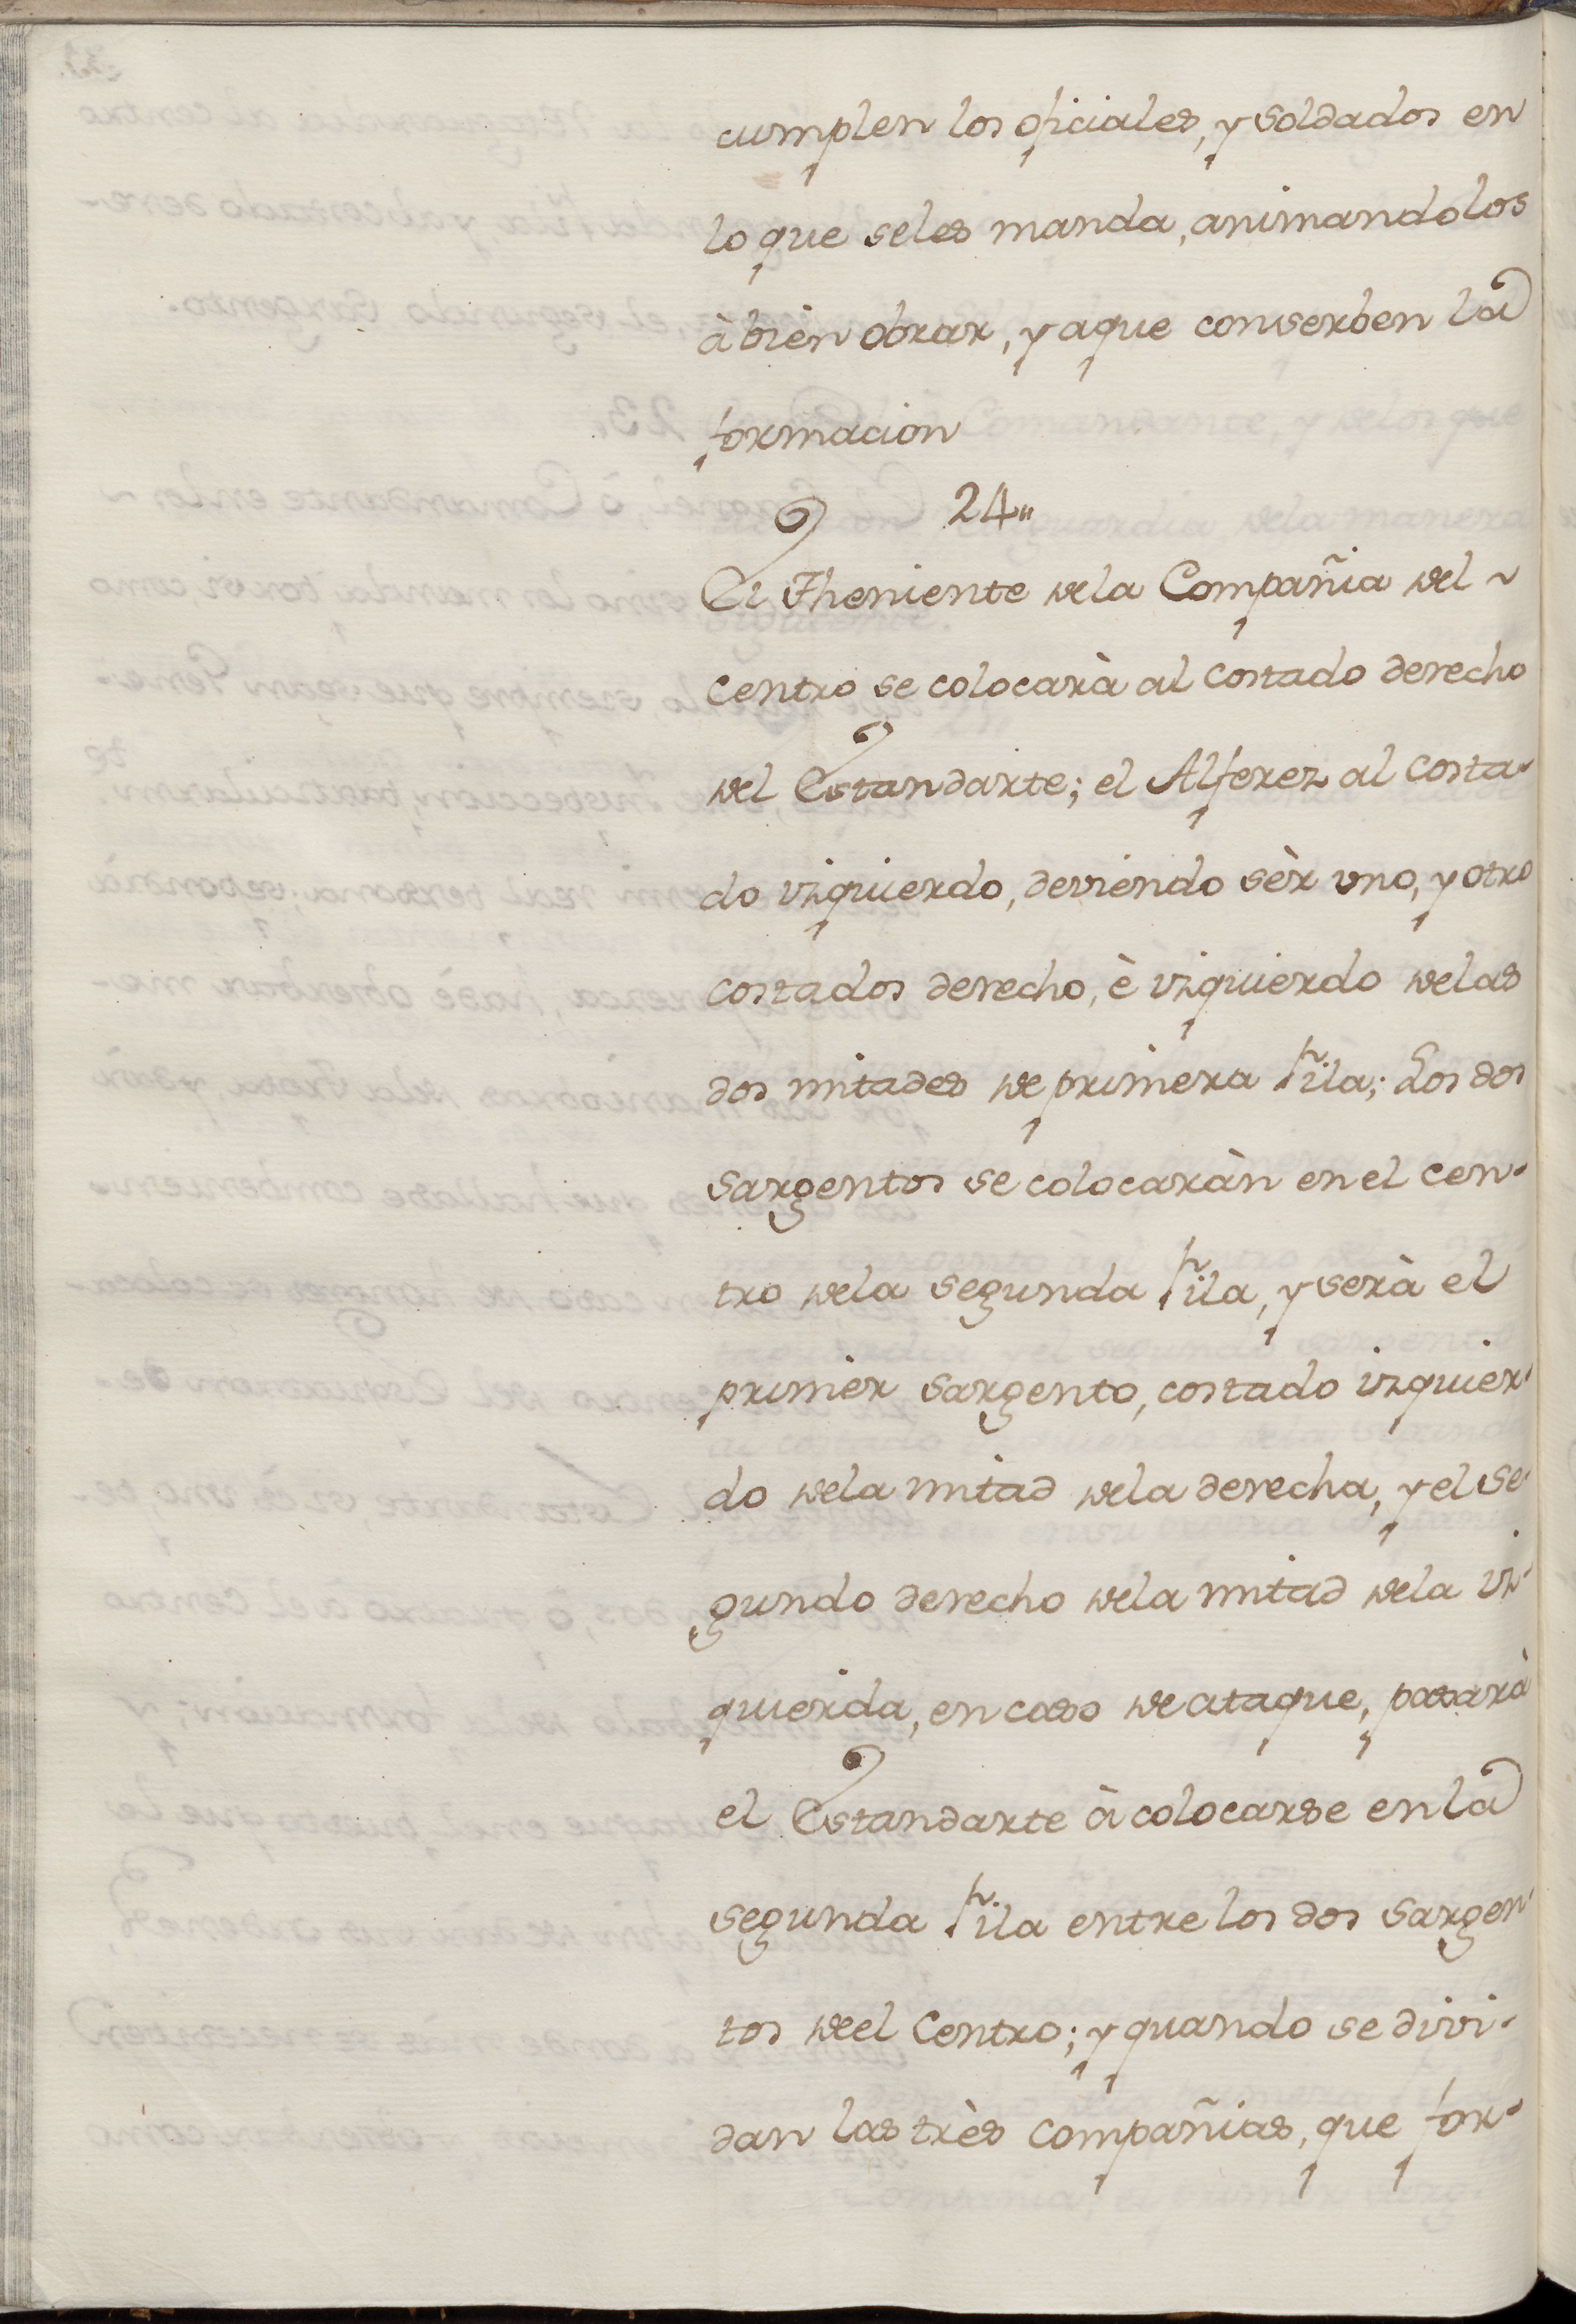 cumplen los oficiales, y soldados en
lo que seles manda, animandolos
à bien obrar, y aque conserben la
formacion
24"
El Theniente dela Compañia del ~
centro se colocarà al costado derecho
del Estandarte; el Alferez al costa-
do izquierdo, deviendo sèr uno, y otro
costados derecho, è izquierdo delas
dos mitades de primera fila; Los dos
sargentos se colocaràn en el cen-
tro dela segunda fila, y serà el
primer sargento, costado izquier-
do dela mitad dela derecha, y el se-
gundo derecho dela mitad dela iz-
quierda, en caso de ataque, pasarà
el Estandarte à colocarse en la
segunda fila entre los dos sargen-
tos deel Centro; y quando se divi-
dan las très compañias, que for-